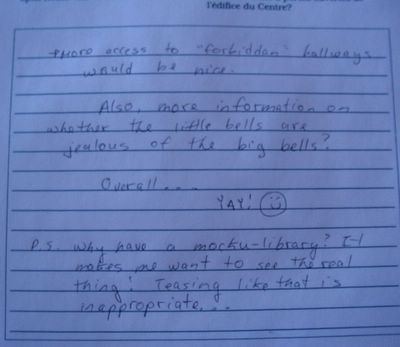 l'édifice du Centre?
more access to "forbidden" hallways
would be nice.
Also, more information on
whether the little bells are
jealous of the big bells?
Overall....
YAY! ☺
P.S. Why have a mocku-library? It
makes me want to see the real
thing! Teasing like that is
inappropriate...